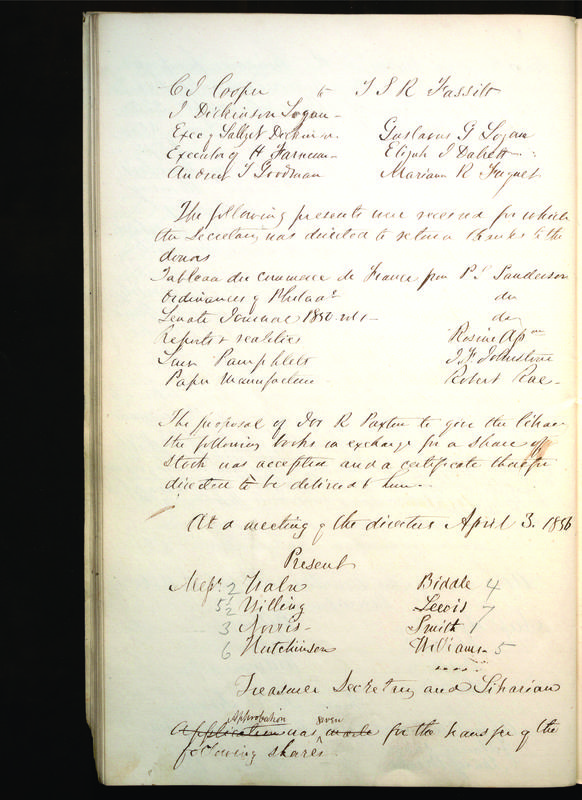 C I Cooper to T S R Fassitt
J Dickinson Logan
Exec of Sally N Dickinson Gustavus G Logan
Executor of H Farnum Elijah J Dabett
Andrew T Goodman Mariana R Fuguet
The following presents were received for which
the Secretary was directed to return thanks to the
donors
Tableau du commerce de France from P. Sanderson
Ordinances of Philada do
Senate Journal 1850 do
Reports & realities Rosine Apn
Pamphlets J. F. Johnstone
Paper Manufacture Robert Rae
The proposal of Jos R Paxton to give the Library
the following books in exchange for a share of
stock was accepted and a certificate therefor
directed to be delivered him
At a meeting of the directors April 3. 1856
Present
Messrs 2 Waln Biddle 4
5½ Willing Lewis 7
3 Norris Smith 1
6 Hutchinson Williams 5
Treasurer Secretary and Librarian
Approbation given
Application was made for the transfer of the
following shares